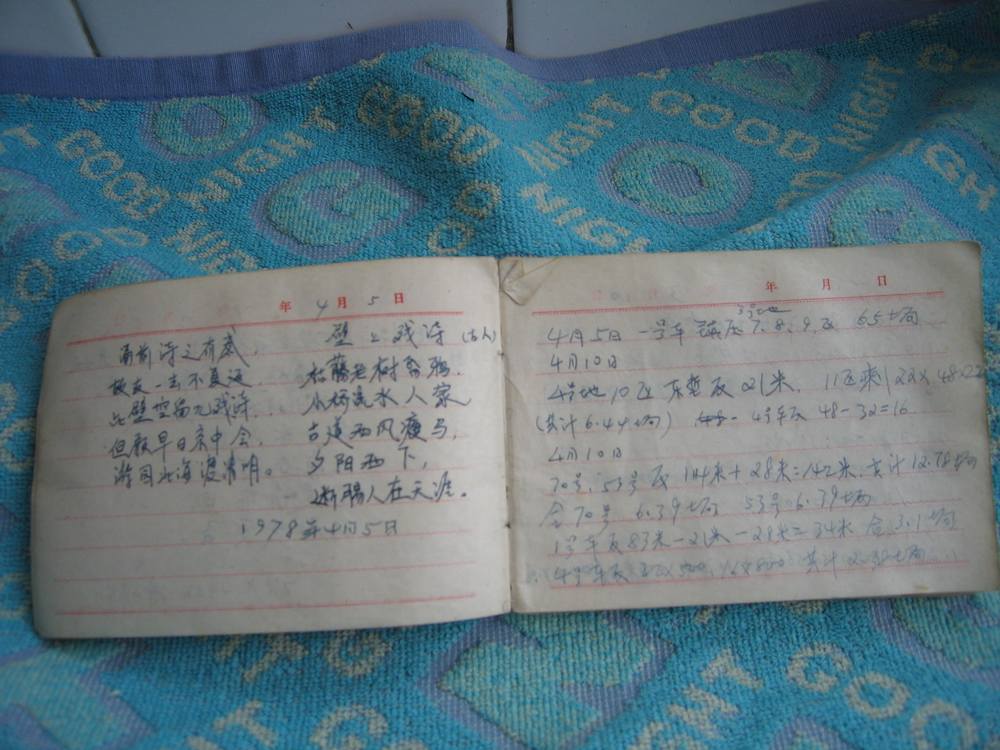 GOOD NIGHT
GOOD NIGHT GOOD NIGHT
年4月5日
壁上残诗(古人)
枯藤老树昏鸦,
小桥流水人家
古道西风瘦马,
夕阳西下,
断肠人在天涯。
故友一去不复返
此壁空留九残诗
但愿早日京中会,
游园北海渡清明。
1978年4月5日
年 月 日
4月5日 一号车 7、8、9反 65
4月10日
4号地10区 反21米,11区
(共计6.44垧) 4号车反48-32=16
4月10日
70号、53号反114米+28米=142米,共计12.78垧
合70号 6.39垧 53号6.39垧
1号车反83米-21米-28米=34米 合3.1垧
4号车反 共计2.38垧